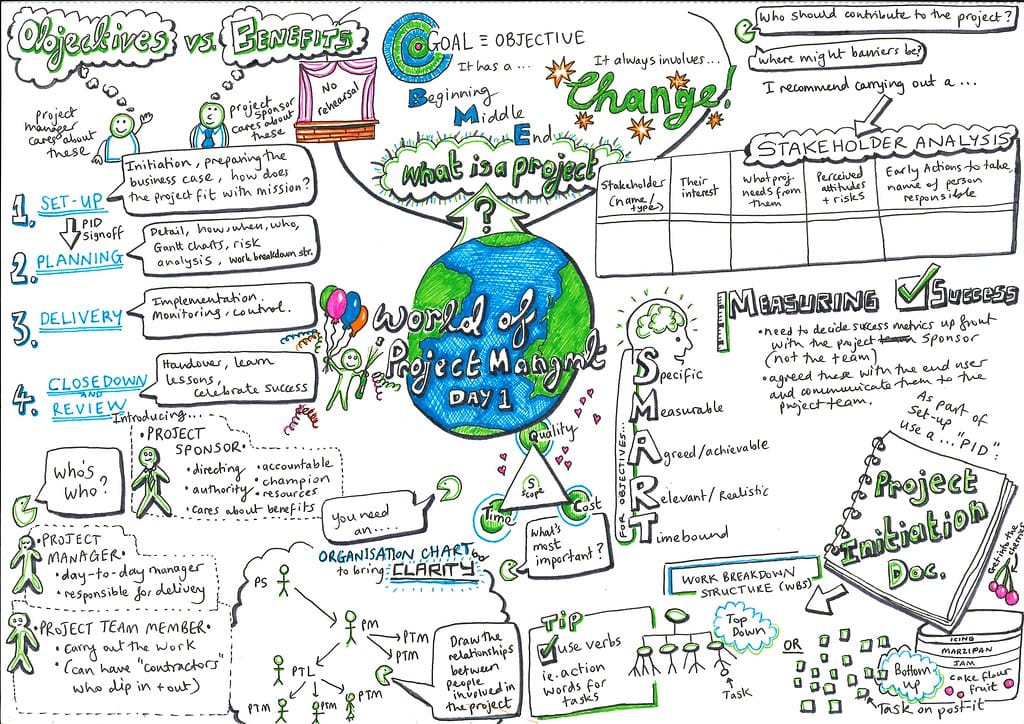 Objectives vs. BENEFITS
Project
manager
cares about
these
project
sponsor
cares about
these
No
rehearsal
GOAL ≡ OBJECTIVE
It has a ...
Beginning
Middle
End
It always involves...
Change!
What is a project
?
Who should contribute to the project?
where might barriers be?
I recommend carrying out a ...
STAKEHOLDER ANALYSIS
Stakeholder
(name/
type)
Their
interest
What proj
needs from
them
Perceived
attitudes
+ risks
Early Actions to take,
name of person
responsible
1. SET-UP
Initiation, preparing the
business case, how does
the project fit with mission?
PID
Signoff
2. PLANNING
Detail, how, when, who,
Gantt charts, risk
analysis, work breakdown str.
3. DELIVERY
Implementation.
Monitoring, control.
4. CLOSEDOWN
AND
REVIEW
Handover, learn
lessons,
celebrate success
World of
Project Mangmt
DAY 1
Quality
Time
Cost
Scope
What's
most
important?
FOR OBJECTIVES...
SMART
Specific
Measurable
Agreed/achievable
Relevant/Realistic
Timebound
MEASURING SUCCESS
• need to decide success metrics up front
with the project sponsor
(not the team)
• agreed these with the end user
and communicate them to the
project team.
As part of
Set-up
use a ... "PID":
Project
Initiation
Doc.
Get into the
cherries
Introducing...
Who's
Who?
• PROJECT
SPONSOR •
• directing
• authority
• accountable
• champion
• resources
• cares about benefits
• PROJECT
MANAGER •
• day-to-day manager
• responsible for delivery
• PROJECT TEAM MEMBER •
• carry out the work
• (can have "contractors"
who dip in + out)
You need
an.....
ORGANISATION CHART
to bring CLARITY
PS
PM
PTM
PTM
PTL
PTM
PTM
PTM
Draw the
relationships
between
people
involved in
the project
WORK BREAKDOWN
STRUCTURE (WBS)
TIP
use verbs
ie. action
words for
tasks
Top
Down
Task
OR
Bottom
up
Task on post-it
ICING
MARZIPAN
JAM
cake flour
fruit